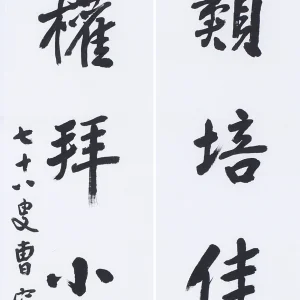 類培佳
權拜小
七十八叟曹